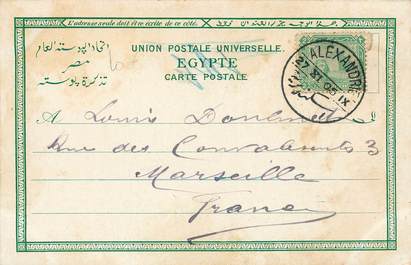 L'adresse seule doit être écrite de ce côté.
اتحاد البوستة العام
مصر
تذكرة بوستة
UNION POSTALE UNIVERSELLE.
EGYPTE
CARTE POSTALE
ALEXANDRIE
A Louis
Rue des Convalescents 3
Marseille
France